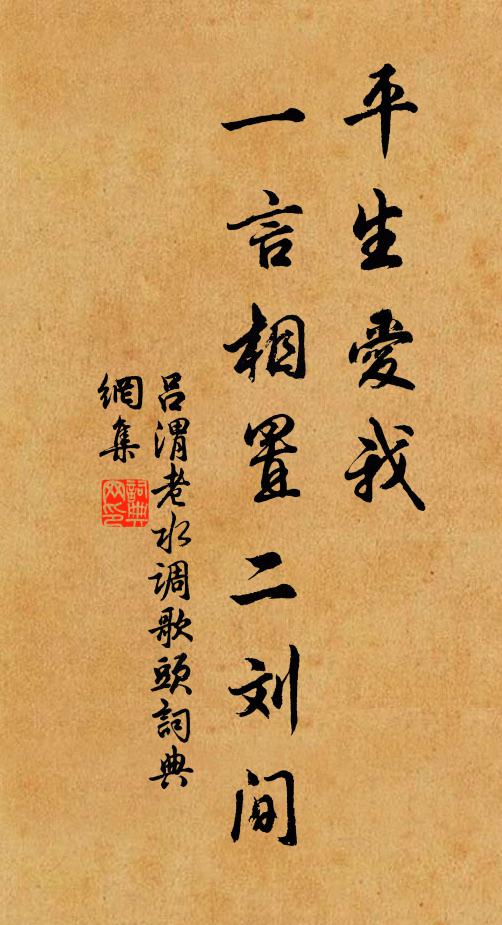 平生愛我
一言相置二刘间
吕渭老水调歌頭詞典
網集
詞典
网印